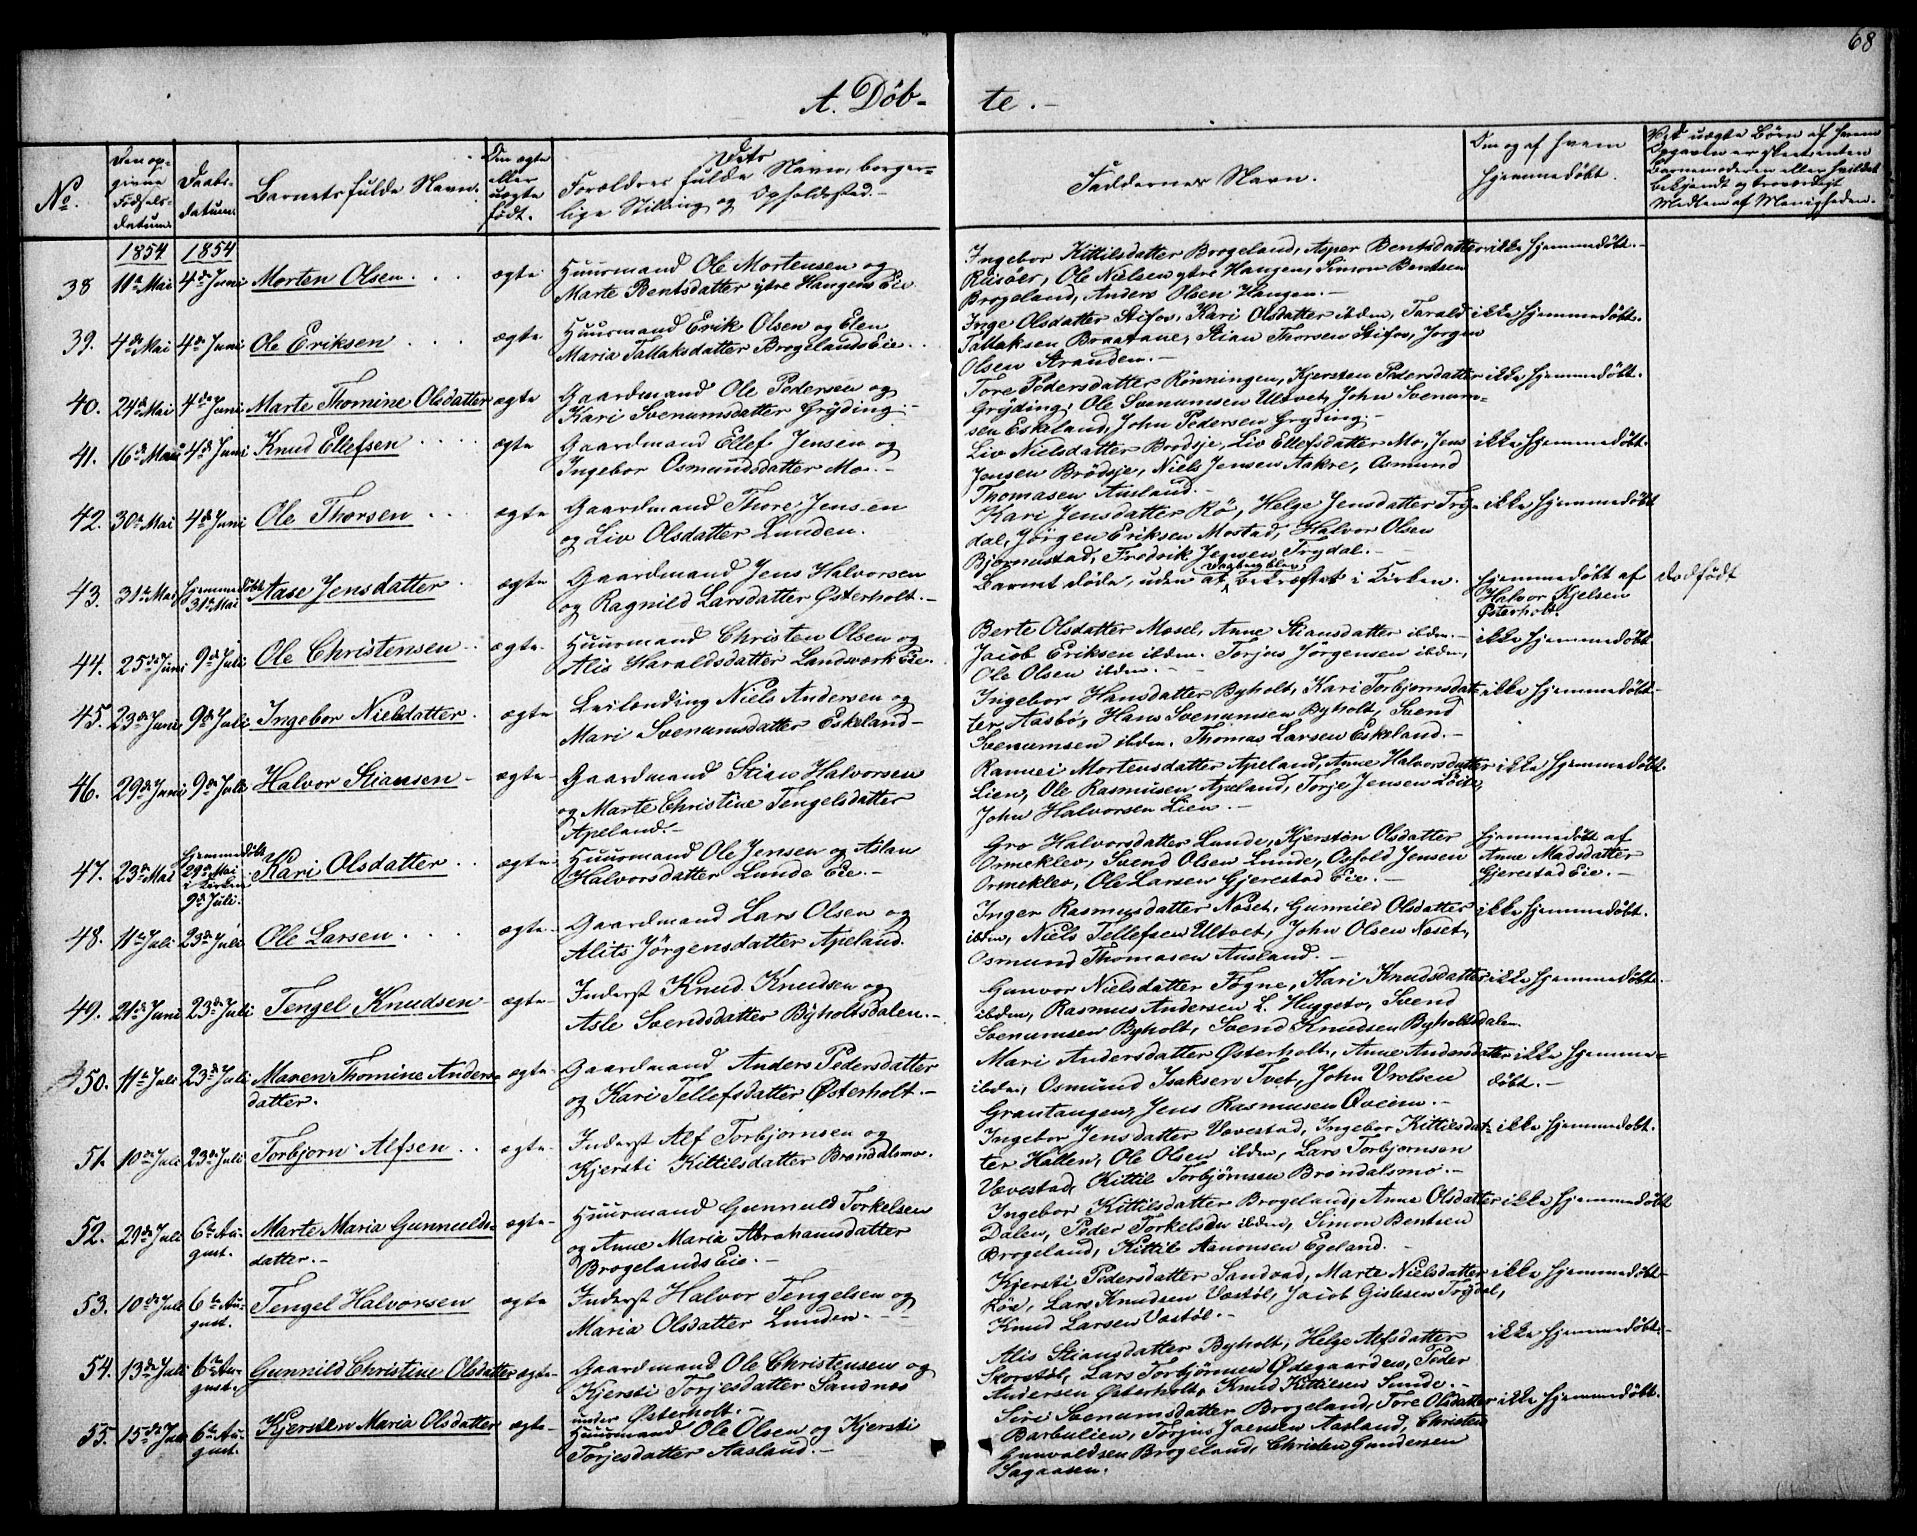 68
A. Döb- te. -
No.
Den op-
givne
Fødsels-
datum.
Daabs-
datum.
Barnets fulde Navn.
Om ægte
eller
uægte
født.
Forældres fulde Navn, borger-
lige Stilling og Opholdssted. -
Faddernes Navn.
Om og af hvem
hjemmedöbt.
Ved uægte Börn af hvem
Opgaven er skeet
Barnemoderen eller hvilket
bekjendt og troværdigt
Medlem af Menigheden.
1854 1854
38 11te Mai 4de Juni Morten Olsen ægte
Huusmand Ole Mortensen og
Marte Bentsdatter ytre Hangens Eie
Ingebor Kittilsdatter Brogeland, Asper Bentsdatter
Riisöer, Ole Nielsen ytre Hangen, Simon Bentsen
Brogeland, Anders Olsen Hangen. -
ikke hjemmedöbt. -
39. 4de Mai 4de Juni Ole Eriksen ægte
Huusmand Erik Olsen og Elen
Maria Tallaksdatter Brogelands Eie.
Inge Olsdatter Stifos, Kari Olsdatter ibdem, Tarald
Tallaksen Braatane, Stian Thorsen Stifos, Jørgen
Olsen Stranden. -
ikke hjemmedöbt.
40. 24de Mai 4de Juni Marte Thomine Olsdatter ægte
Gaardmand Ole Pedersen og
Kari Svenumsdatter Gryding. -
Tore Pedersdatter Rönningen, Kjersten Pedersdatter
Gryding, Ole Svenumsen Ultvet, John Svenum-
sen Eskeland, John Pedersen Gryding. -
ikke hjemmedöbt.
41. 16de Mai 4de Juni Knud Ellefsen ægte
Gaardmand Ellef Jensen og
Ingebor Osmundsdatter Mo. -
Liv Nielsdatter Brödsje, Liv Ellefsdatter Mo, Jens
Jensen Brödsje, Niels Jensen Aakre, Osmund
Thomasen Ausland. -
ikke hjemmedöbt.
42. 30te Mai 4de Juni Ole Thorsen ægte
Gaardmand Thore Jensen
og Liv Olsdatter Lunden.
Kari Jensdatter Rö, Helge Jensdatter Try-
dal, Jörgen Eriksen Mostad, Halvor Olsen
Bjornustad, Fredrik Jensen Trydal. -
ikke hjemmedöbt
43. 31te Mai Hjemmedöbt 31te Mai Aase Jensdatter ægte
Gaardmand Jens Halvorsen
og Ragnild Larsdatter Østerholt. -
Barnet döde, uden at Daaben blev bekræftet i Kirken.
Hjemmedöbt af
Halvor Kjelsen
Østerholt.
dödfödt
44. 25de Juni 9de Juli Ole Christensen ægte.
Huusmand Christen Olsen og
Alis Haraldsdatter Landsverk Eie.
Berte Olsdatter Mosel, Anne Stiansdatter ibdem. -
Jacob Eriksen ibdem. Torjus Jörgensen ibdem,
Ole Olsen ibdem. -
ikke hjemmedöbt
45. 23de Juni 9de Juli Ingebor Nielsdatter ægte
Leilænding Niels Andersen og
Mari Svenumsdatter Eskeland -
Ingebor Hansdatter Byholt, Kari Torbjornsdat-
ter Aasbö, Hans Svenumsen Byholt, Svend
Svenumsen ibdem. Thomas Larsen Eskeland. -
ikke hjemmedöbt -
46. 29de Juni 9de Juli Halvor Stiansen - ægte -
Gaardmand Stian Halvorsen
og Marte Christine Tengelsdatter
Apeland. -
Rannei Mortensdatter Apeland, Anne Halvorsdatter
Lien, Ole Rasmusen Apeland, Torje Jensen Löite,
John Halvorsen Lien. -
ikke hjemmedöbt.
47. 23de Mai Hjemmedöbt 29de Mai i Kirken 9de Juli. Kari Olsdatter ægte -
Huusmand Ole Jensen og Aslau
Halvorsdatter Lunde Eie. -
Gro Halvorsdatter Lunde, Kjersten Olsdatter
Ormeklev, Svend Olsen Lunde, Osfold Jensen
Ormeklev, Ole Larsen Gjerestad Eie. -
Hjemmedöbt af
Anne Madsdatter
Gjerestad Eie. -
48. 11te Juli 23de Juli Ole Larsen ægte -
Gaardmand Lars Olsen og
Alits Jörgensdatter Apeland.
Inger Rasmusdatter Noset, Gunnild Olsdatter
ibdem, Niels Tellefsen Ultvet, John Olsen Noset,
Osmund Thomasen Ausland. -
ikke hjemmedöbt.
49. 21de Juni 23de Juli Tengel Knudsen ægte -
Inderst Knud Knudsen og
Asle Svendsdatter Byholtsdalen. -
Gunvor Nielsdatter Fogne, Kari Knudsdatter
ibdem, Rasmus Andersen L. Huggsto, Svend
Svenumsen Byholt, Svend Knudsen Byholtsdalen
ikke hjemmedöbt.
50. 11te Juli 23de Juli Maren Thomine Anders-
datter. ægte -
Gaardmand Anders Pedersdatter
og Kari Tellefsdatter Østerholt. -
Mari Andersdatter Østerholt, Anne Andersdatter
ibdem, Osmund Isaksen Tvet, John Vrolsen
Grautangen, Jens Rasmusen Oveim. -
ikke hjemme-
döbt. -
51. 10de Juli 23de Juli Torbjorn Alfsen ægte -
Inderst Alf Torbjornsen og
Kjersti Kittilsdatter Brondalsmo.
Ingebor Jensdatter Vævestad, Ingebor Kittilsdat-
ter Holten, Ole Olsen ibdem, Lars Torbjornsen
Vævestad, Kittil Torbjörnsen Brondalsmo. -
ikke hjemmedöbt.
52. 29de Juli 6te Au-
gust. Marte Maria Gunnulds-
datter. - ægte -
Huusmand Gunnuld Torkelsen
og Anne Maria Abrahamsdatter
Brogelands Eie. -
Ingebor Kittilsdatter Brogeland, Anne Olsdatter
Dalen, Peder Torkelsen ibdem, Simon Bentsen
Brogeland, Kittil Aanonsen Egeland.
ikke hjemmedöbt
53. 10de Juli 6te Au-
gust. Tengel Halvorsen ægte
Inderst Halvor Tengelsen og
Maria Olsdatter Lunden. - -
Kjersti Pedersdatter Sandvad, Marte Nielsdatter
Röd, Lars Knudsen Vestöl, Jacob Gislesen Trydal,
Knud Larsen Vestöl. -
ikke hjemmedöbt -
54. 13de Juli 6te Au-
gust. Gunnild Christine Olsdatter ægte -
Gaardmand Ole Christensen og
Kjersti Torjesdatter Sandnes
under Østerholt. -
Alis Stiansdatter Byholt, Helge Alfsdatter
Skorstöl, Lars Torbjörnsen Ødegaarden, Peder
Andersen Østerholt, Knud Kittilsen Lunde. -
ikke hjemmedöbt. -
55. 15de Juli 6te Au-
gust. Kjersten Maria Olsdatter ægte -
Huusmand Ole Olsen og Kjersti
Torjesdatter Aasland. -
Siri Svenumsdatter Brogeland, Tore Olsdatter
Barbulien, Torjus Jensen Aasland, Christen
Gunvaldsen Brogeland, Christen Gundersen
Sagaasen.
ikke hjemmedöbt.